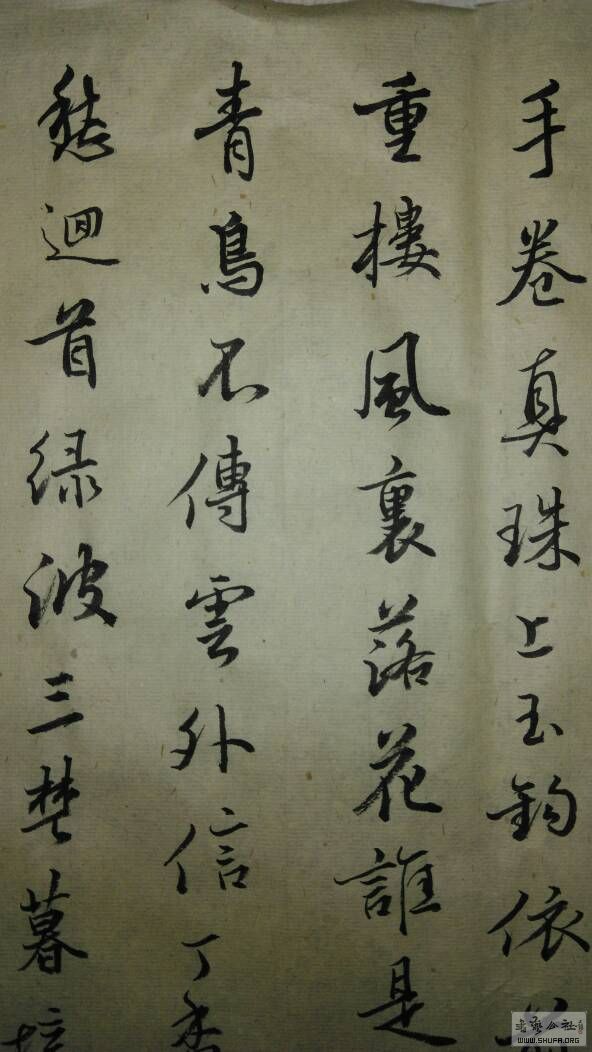 手卷真珠上玉鈎依
重樓風裏落花誰是
青鳥不傳雲外信丁香
愁迴首緑波三楚暮接
書藝公社
WWW.SHUFA.ORG